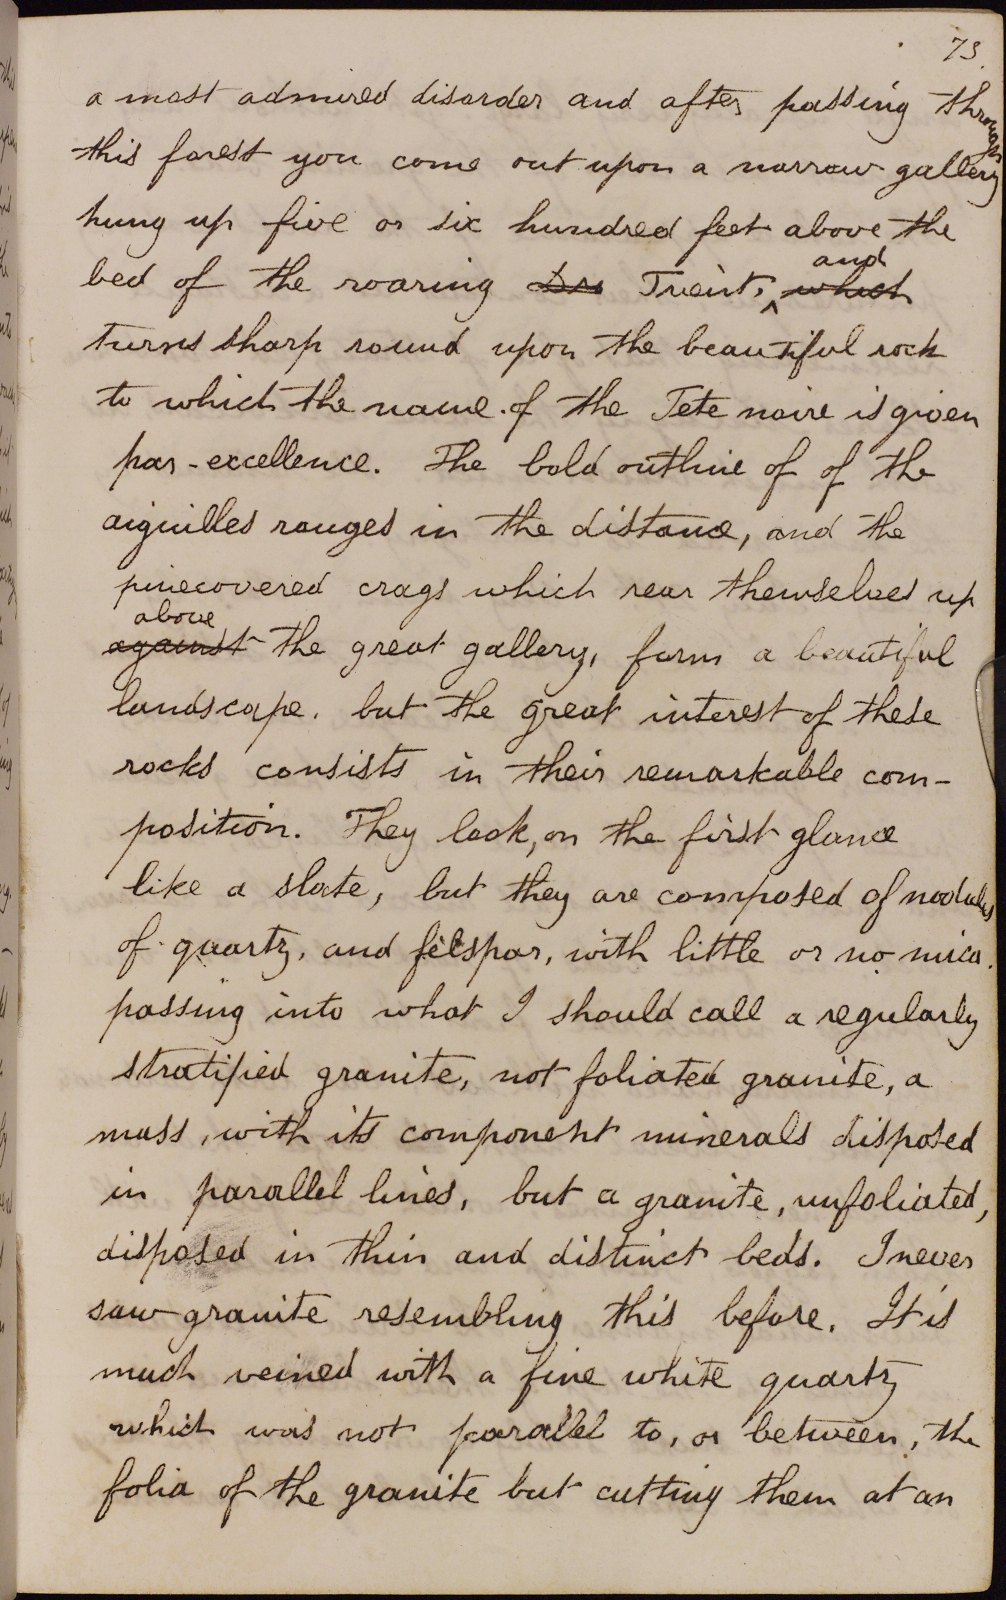 73.
a most admired disorder and after passing through
this forest you come out upon a narrow gallery
hung up five or six hundred feet above the
bed of the roaring Trient, and which
turns sharp round upon the beautiful rock
to which the name of the Tete noire is given
par-excellence. The bold outline of of the
aiguilles rouges in the distance, and the
pinecovered crags which rear themselves up
above
against the great gallery, form a beautiful
landscape. but the great interest of these
rocks consists in their remarkable com-
position. They look, on the first glance
like a slate, but they are composed of nodules
of quartz, and felspar, with little or no mica.
passing into what I should call a regularly
stratified granite, not foliated granite, a
mass, with its component minerals disposed
in parallel lines, but a granite, unfoliated,
disposed in thin and distinct beds. I never
saw granite resembling this before. It is
much veined with a fine white quartz
which was not parallel to, or between, the
folia of the granite but cutting them at an